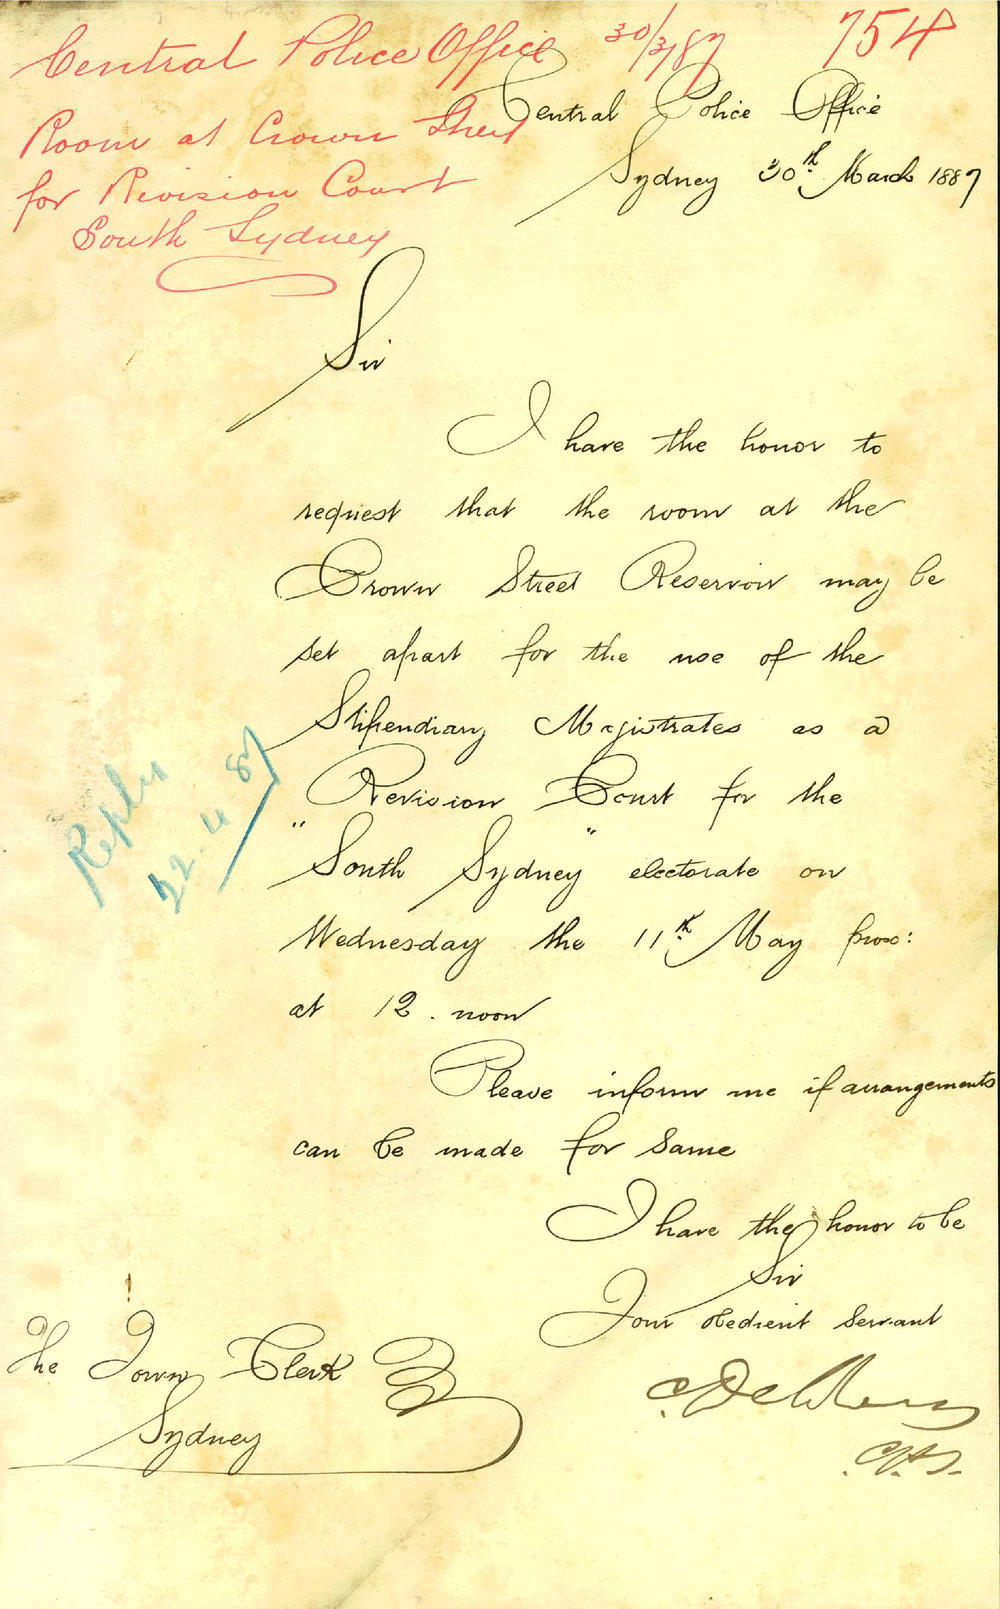 Central Police Office 30/3/87 754
Room at Crown Street
for Revision Court
South Sydney
Central Police Office
Sydney 30th March 1887
Sir
I have the honor to
request that the room at the
Crown Street Reservoir may be
set apart for the use of the
Stipendiary Magistrates as a
Revision Court for the
"South Sydney" electorate on
Wednesday the 11th May prox:
at 12. noon
Please inform me if arrangements
can be made for same
I have the honor to be
Sir
Your obedient servant
C. Delohery
The Town Clerk
Sydney
Reply
22.4.87